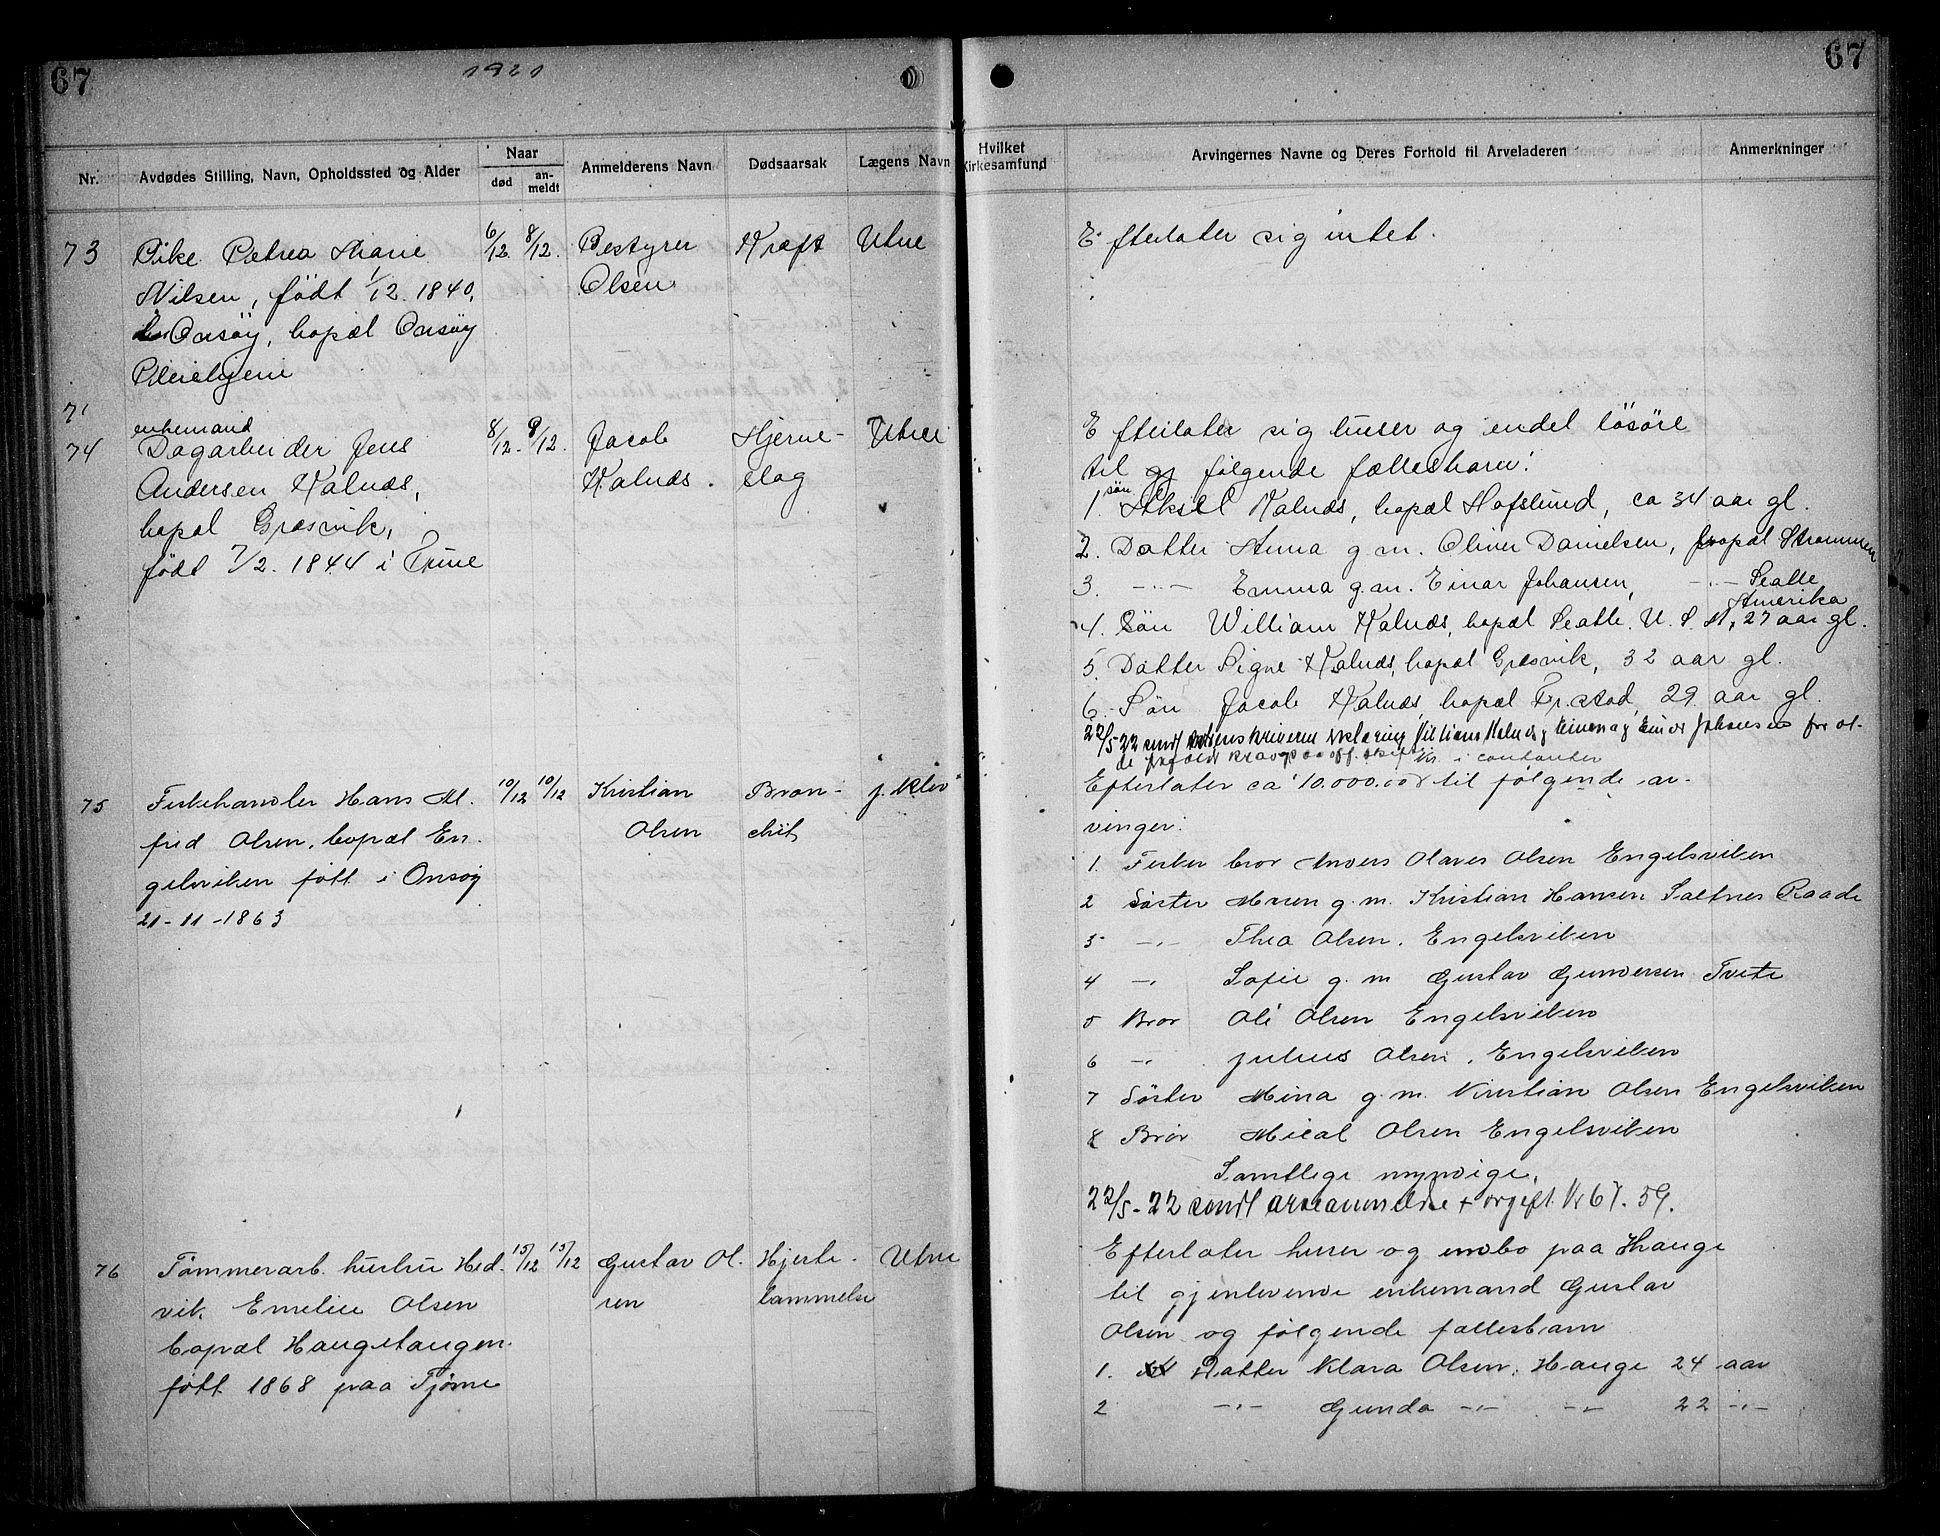 67
1921
67
Nr.
Avdødes Stilling, Navn, Opholdssted og Alder
Naar
død
an-
meldt
Anmelderens Navn
Dødsaarsak
Lægens Navn
Hvilket
Kirkesamfund
Arvingernes Navne og Deres Forhold til Arveladeren
Anmerkninger
73
Pike Petrea Marie
Nilsen, født 1/12. 1840,
Onsøy, bopæl Onsøy
Pleiehjem
6/12. 8/12.
Bestyrer
Olsen
Kræft
Utne
Efterlater sig intet.
71
74
enkemand
Dagarbeider Jens
Andersen Kalnæs,
bopæl Græsvik,
født 7/2. 1844 i Tune
8/12. 9/12.
Jacob
Kalnæs.
Hjerne-
slag
Utne
Efterlater sig huser og endel løsøre
til gj følgende fællesbarn:
1. søn Aksel Kalnæs, bopæl Hafslund, ca 34 aar gl.
2. Datter Anna g.m. Oliver Danielsen, bopæl Strømmen
3. -"- Emma g.m. Einar Johansen, -"- Seatle
Amerika
4. Søn William Kalnæs, bopæl Seatle. U.S.A, 27 aar gl.
5. Datter Signe Kalnæs, bopæl Græsvik, 32 aar gl.
6. Søn Jacob Kalnæs bopæl Fr.stad, 29 aar gl.
22/5-22 sendt sorenskriveren erklæring William Kalnæs og Emma og Einar Johansen for at
de frafaldt krav paa off. skifte
kr. i contanter
75
Fiskehandler Hans Al.
fred Olsen, bopæl En.
gelsviken født i Onsøy
21-11-1863
10/12 10/12
Kristian
Olsen
Bron-
chit
J. Klev
Efterlater ca 10.000.00 til følgende ar-
vinger:
1. Fisker bror Anders Olaves Olsen Engelsviken
2 Søster Maren g.m. Kristian Hansen Saltnes Raade
3 -"- Thea Olsen. Engelsviken
4 -"- Sofie g.m Gustav Gundersen Tvete
5 Bror Ole Olsen Engelsviken
6 -"- Julius Olsen. Engelsviken
7 Søster Mina g.m. Kristian Olsen Engelsviken
8 Bror Mical Olsen Engelsviken
Samtlige myndige.
22/5-22 sendt arveanmeldelse + avgift kr 67.59.
76
Tømmerarb. hustru Hed.
vik Emelie Olsen
bopæl Haugetangen.
født 1868 paa Tjøme
15/12 15/12
Gustav Ol.
sen
Hjerte.
lammelse
Utne
Efterlater huser og indbo paa Hauge
til gjenlevende enkemand Gustav
Olsen og følgende fællesbarn
1. Datter Klara Olsen. Hauge 24 aar
2 -"- Gunda -"- -"- 22 -"-